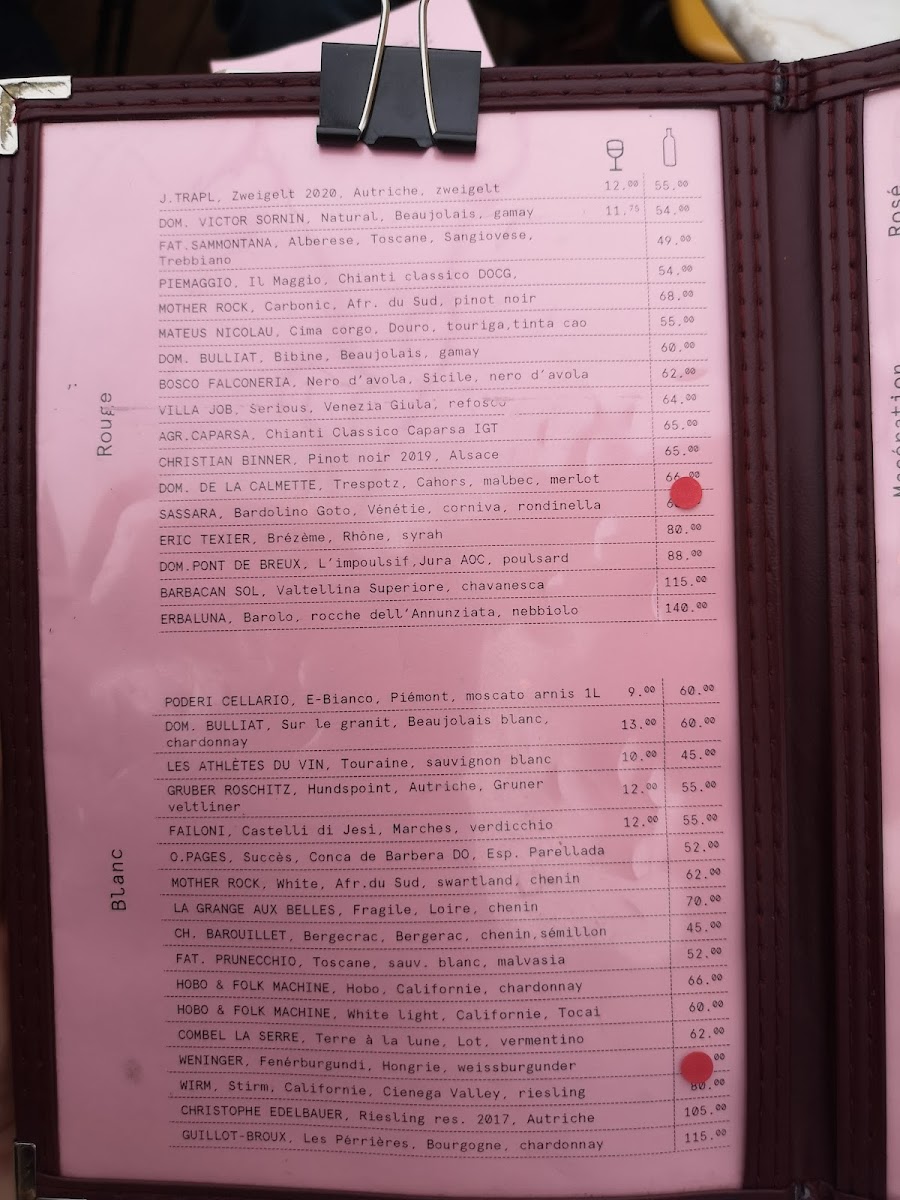 J.TRAPL, Zweigelt 2020, Autriche, zweigelt 12.00 55.00
DOM. VICTOR SORNIN, Natural, Beaujolais, gamay 11.75 54.00
FAT.SAMMONTANA, Alberese, Toscane, Sangiovese, 49.00
Trebbiano
PIEMAGGIO, Il Maggio, Chianti classico DOCG, 54.00
MOTHER ROCK, Carbonic, Afr. du Sud, pinot noir 68.00
MATEUS NICOLAU, Cima corgo, Douro, touriga,tinta cao 55.00
DOM. BULLIAT, Bibine, Beaujolais, gamay 60.00
BOSCO FALCONERIA, Nero d'avola, Sicile, nero d'avola 62.00
VILLA JOB, Serious, Venezia Giula, refosco 64.00
AGR.CAPARSA, Chianti Classico Caparsa IGT 65.00
CHRISTIAN BINNER, Pinot noir 2019, Alsace 65.00
DOM. DE LA CALMETTE, Trespotz, Cahors, malbec, merlot 66.00
SASSARA, Bardolino Goto, Vénétie, corniva, rondinella
ERIC TEXIER, Brézème, Rhône, syrah 80.00
DOM.PONT DE BREUX, L'impoulsif,Jura AOC, poulsard 88.00
BARBACAN SOL, Valtellina Superiore, chavanesca 115.00
ERBALUNA, Barolo, rocche dell'Annunziata, nebbiolo 140.00
Rouge
PODERI CELLARIO, E-Bianco, Piémont, moscato arnis 1L 9.00 60.00
DOM. BULLIAT, Sur le granit, Beaujolais blanc, 13.00 60.00
chardonnay
LES ATHLÈTES DU VIN, Touraine, sauvignon blanc 10.00 45.00
GRUBER ROSCHITZ, Hundspoint, Autriche, Gruner 12.00 55.00
veltliner
FAILONI, Castelli di Jesi, Marches, verdicchio 12.00 55.00
O.PAGES, Succès, Conca de Barbera DO, Esp. Parellada 52.00
MOTHER ROCK, White, Afr.du Sud, swartland, chenin 62.00
LA GRANGE AUX BELLES, Fragile, Loire, chenin 70.00
CH. BAROUILLET, Bergecrac, Bergerac, chenin,sémillon 45.00
FAT. PRUNECCHIO, Toscane, sauv. blanc, malvasia 52.00
HOBO & FOLK MACHINE, Hobo, Californie, chardonnay 66.00
HOBO & FOLK MACHINE, White light, Californie, Tocai 60.00
COMBEL LA SERRE, Terre à la lune, Lot, vermentino 62.00
WENINGER, Fenérburgundi, Hongrie, weissburgunder
WIRM, Stirm, Californie, Cienega Valley, riesling 80.00
CHRISTOPHE EDELBAUER, Riesling res. 2017, Autriche 105.00
GUILLOT-BROUX, Les Pérrières, Bourgogne, chardonnay 115.00
Blanc
Rosé